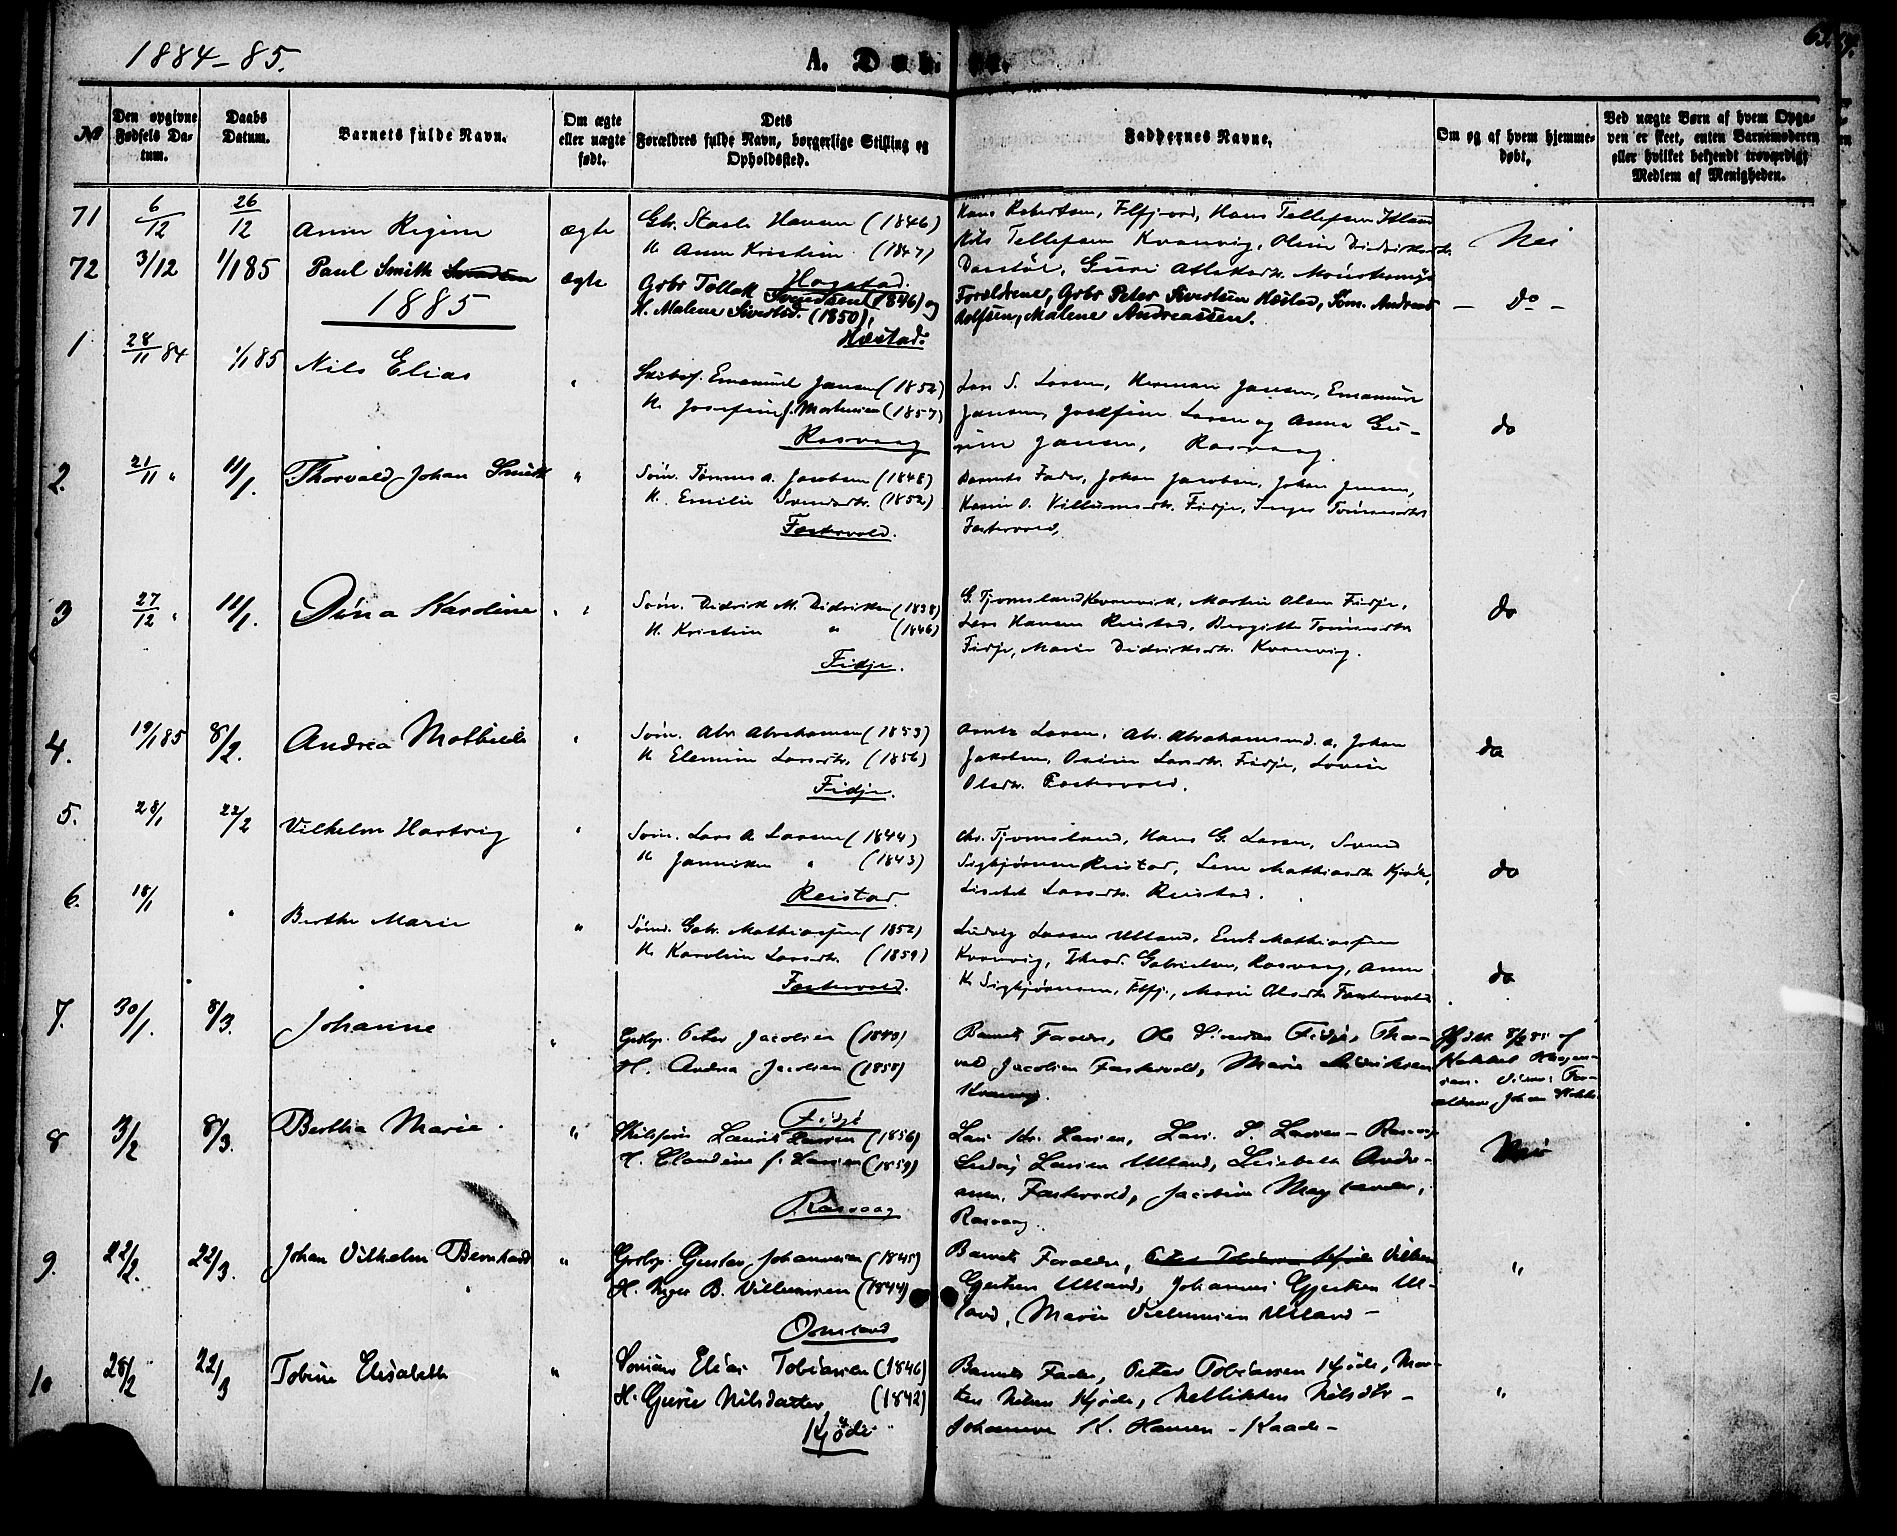 1884-85.
A. Døb
№
Den opgivne Fødsels Da-tum.
Daabs Datum.
Barnets fulde Navn.
Om ægte eller uægte født.
Dets Forældres fulde Navn, borgerlige Stilling og Opholdssted.
Faddernes Navne.
Om og af hvem hjemme-døbt.
Ved uægte Børn af hvem Opga-ven er skeet, enten Barnemoderen eller hvilket bekjendt troværdigt Medlem af Menigheden.
71 6/12 26/12 Anne Regine ægte
Gbr. Staale Hansen (1846)
H. Anne Kristine (1847)
Hogstad.
Hans Robertsen, Flfjord, Hans Tellefsen
Nils Tellefsen Kvanvig, Oline Didriksdtr.
Nei
72 3/12 1/1 85 Paul Smith ægte
Grbr Tollak Svendsen (1846) og
H. Malene Sivertsd. (1850),
Hæstad.
Forældrene, Grbr Peter Sivertsen Hæstad, Søm. Andreas
Rolfsen, Malene Andreassen.
- do -
1885
1 28/11 84 1/1 85 Nils Elias "
Skibsf. Emanuel Jansen (1852)
H. Josefine J. Mortensen (1857)
Rasvaag
Lars S. Larsen, Herman Jansen, Emanuel
Jansen, Josefine Larsen og Anna Gu-
rine Jansen, Rasvaag.
do
2. 21/11 " 11/1. Thorvald Johan Smith "
Søm. Tønnes A. Jacobsen (1848)
H. Emilie Svendsdtr. (1852)
Fastervold.
Barnets Fader, Johan Jacobsen, Johan Jensen,
Karen O. Villumsdtr. Fidje, Inger Tønnesdtr
Fastervold,
3 27/12 " 11/1. Dina Karoline "
Søm. Didrik M. Didriksen (1838)
H. Kristine " (1846)
Fidje.
G. Tjomsland Kvanvik, Martin Olsen Fidje,
Lars Hansen Reistad, Bergitte Tønnesdtr
Fidje, Marie Didriksdtr. Kvanvig.
do
4. 19/1 85 8/2. Andrea Mathilde "
Søm. Abr. Abrahamsen (1853)
H. Elemine Larsdtr. (1856)
Fidje.
Larsen, Abr. Abrahamsen d. a. Johan
Jakobsen, Larsdtr. Fidje, Lovise
Olsdtr. Fastervold.
do
5. 28/1 22/2 Vilhelm Hartvig "
Søm. Lars A. Larsen (1844)
H. Janniken " (1843)
Reistad.
Chr. Tjomsland, Hans G. Larsen, Svend
Sigbjørnsen Reistad, Lene Mathiasdtr. Kjøde,
Lisebet Larsdtr. Reistad.
do
6. 18/1 " Berthe Marie "
Sømd. Gabr. Mathiassen (1852)
H. Karoline Larsdtr. (1859)
Fastervold.
Ludvig Larsen Ulland, Enok Mathiassen
Kvanvig, Theod. Gabrielsen, Rasvaag, Anne
K. Sigbjørnsen, Flfj., Marie Olsdtr. Fastervold
do
7. 30/1. 8/3. Johanne "
Grbg. Peter Jacobsen (1849)
H. Andrea Jacobsen (1858)
Fidje
Barnets Fader, Ole Fidje, Thor-
vald Jacobsen Fastervold, Marie Didriksen
Kvanvig.
8 3/2 8/3. Berthia Marie. "
Laurits Larsen (1856)
H. Claudine J. Larsen (1859)
Rasvaag
Lars Kr. Larsen, Lars. S. Larsen - Rasvaag
Ludvig Larsen Ulland, Lisebeth Andre-
asen, Fastervold, Jacobine
Rasvaag.
Nei
9. 22/2. 22/3. Johan Vilhelm Bernhard "
Grbg. Gustav Johannesen (1845)
H. Inger B. Villumsen (1844)
Omland
Barnets Forældre, Villum
Gjertsen Ulland, Johannes Gjertsen Ul-
land, Marie Villumsen Ulland -
"
10 28/2 22/3 Tobine Elisabeth "
Sømand Elias Tobiassen (1846)
H. Gurie Nilsdatter (1842)
Kjøde
Barnets Fader, Peter Tobiassen Kjøde, Mor-
ten Nilsen Kjøde, Nellikken Nilsdtr -
Johanne K. Hansen - Kaade -
"